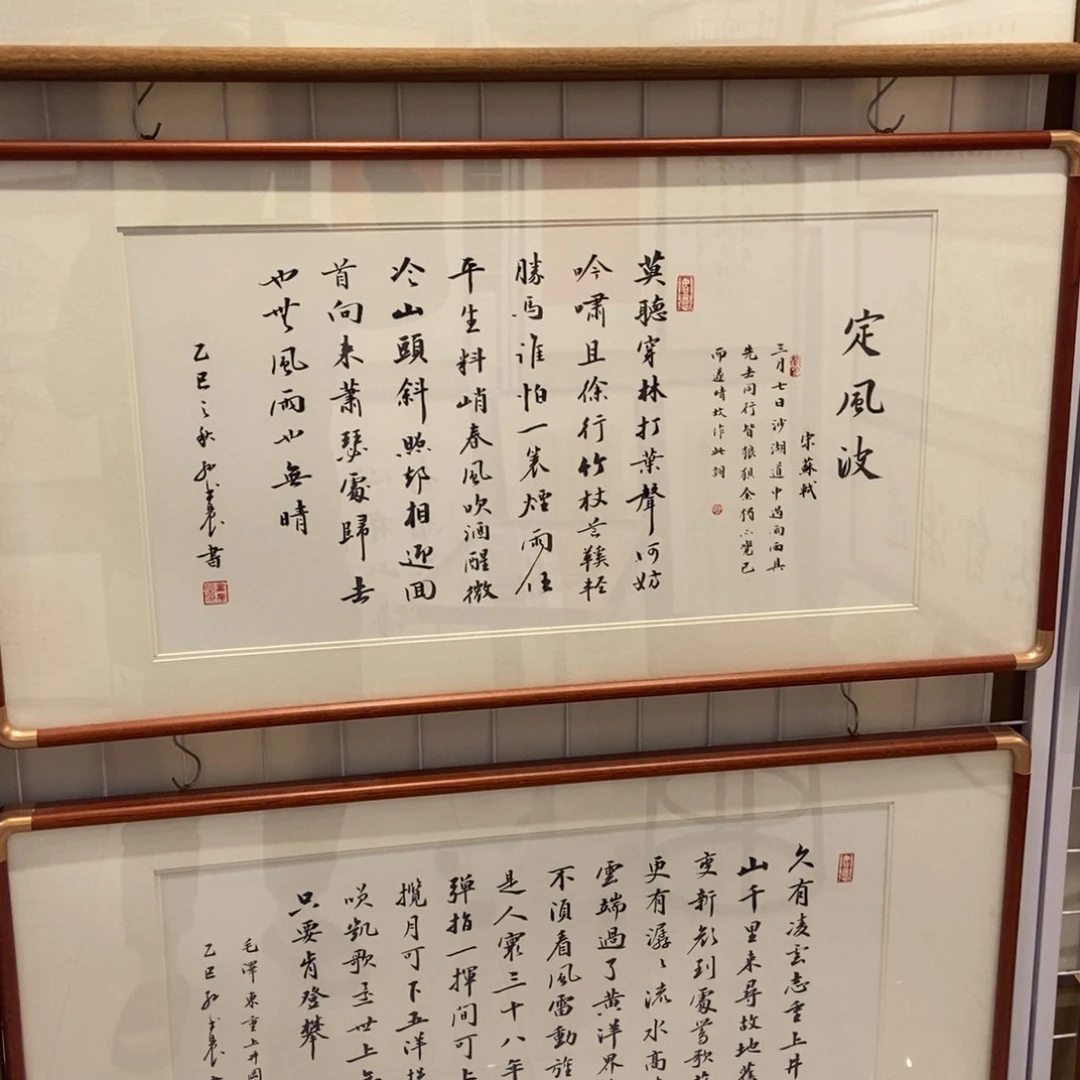 定風波
宋蘇軾
三月七日沙湖道中遇雨雨具
先去同行皆狼狽余獨不覺已
而遂晴故作此詞
莫聽穿林打葉聲何妨
吟嘯且徐行竹杖芒鞵輕
勝馬誰怕一蓑煙雨任
平生料峭春風吹酒醒微
冷山頭斜照却相迎回
首向来蕭瑟處歸去
也無風雨也無晴
乙巳之秋
書
久有凌雲志重上井
山千里来尋故地舊
變新顔到處鶯歌燕
更有潺々流水高
雲端過了黄洋界
不須看風雷動旌
是人寰三十八年
彈指一揮間可上
攬月可下五洋捉
談笑凱歌還世上無
只要肯登攀
毛澤東重上井岡
乙巳